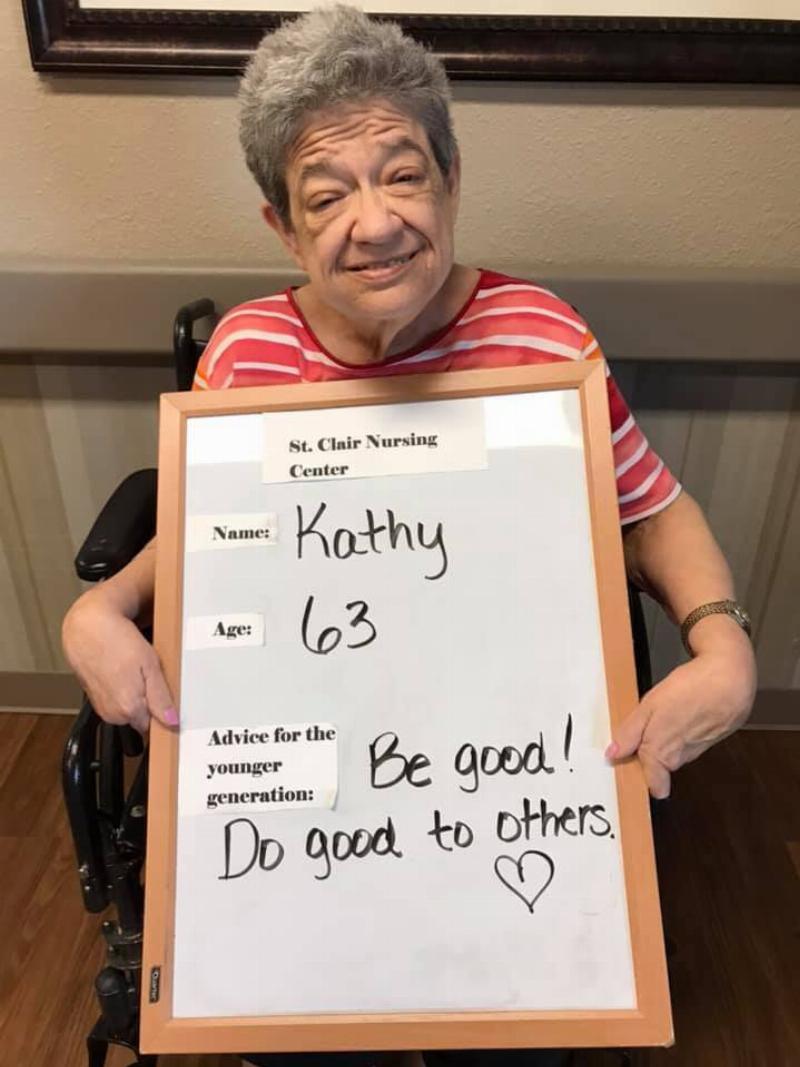 St. Clair Nursing
Center
Name: Kathy
Age: 63
Advice for the
younger
generation: Be good!
Do good to others.
Quartet